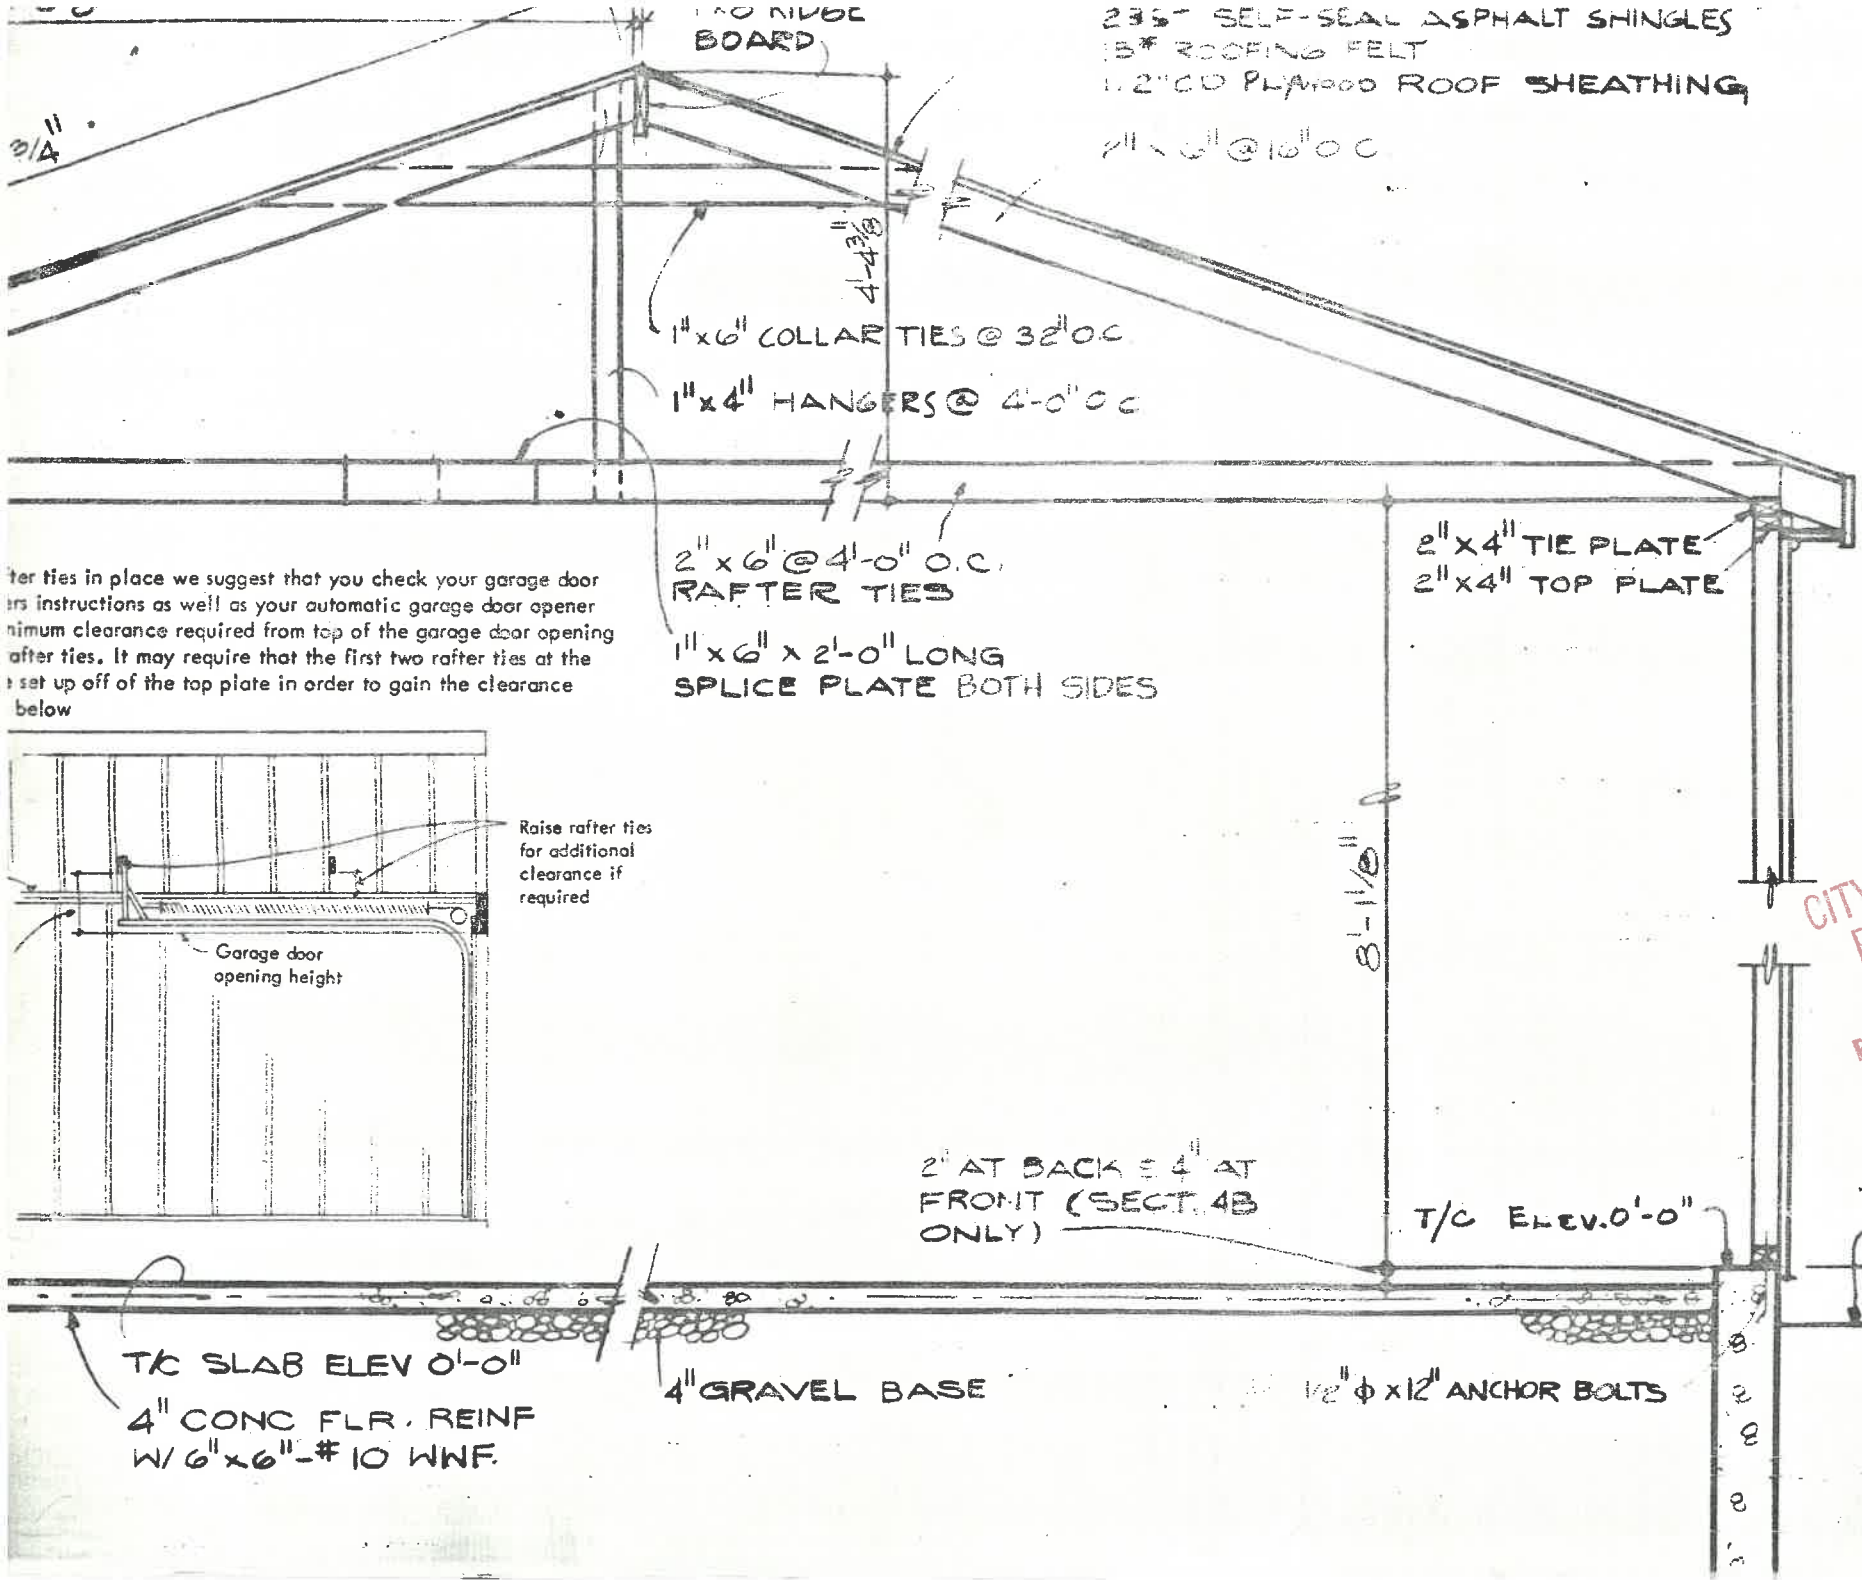 BOARD
235# SELF-SEAL ASPHALT SHINGLES
15# ROOFING FELT
1/2" CD PLYWOOD ROOF SHEATHING
2" x 6" @ 16" O C
3/4"
4'-4 3/8"
1" x 6" COLLAR TIES @ 32" O.C.
1" x 4" HANGERS @ 4'-0" O C
2" x 6" @ 4'-0" O.C.
RAFTER TIES
2" X 4" TIE PLATE
2" X 4" TOP PLATE
1" x 6" x 2'-0" LONG
SPLICE PLATE BOTH SIDES
ter ties in place we suggest that you check your garage door
ers instructions as well as your automatic garage door opener
nimum clearance required from top of the garage door opening
after ties. It may require that the first two rafter ties at the
e set up off of the top plate in order to gain the clearance
below
Raise rafter ties
for additional
clearance if
required
Garage door
opening height
8'-1 1/8"
CITY
2" AT BACK & 4" AT
FRONT (SECT. 4B
ONLY)
T/C ELEV. 0'-0"
T/C SLAB ELEV 0'-0"
4" CONC FLR. REINF
W/ 6" x 6" - # 10 WWF.
4" GRAVEL BASE
1/2" φ x 12" ANCHOR BOLTS